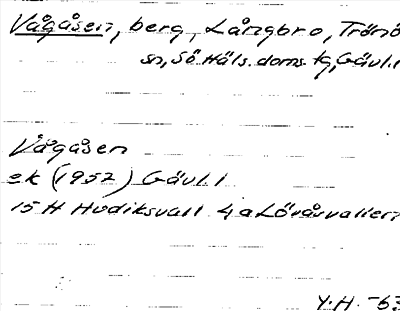 Vågåsen, berg, Långbro, Trönö
sn, Sö Häls. doms. tg, Gävl. l
Vågåsen
ek (1957) Gävl. l
15 H Hudiksvall 4 a Lövåsvallen
Y. H. -63